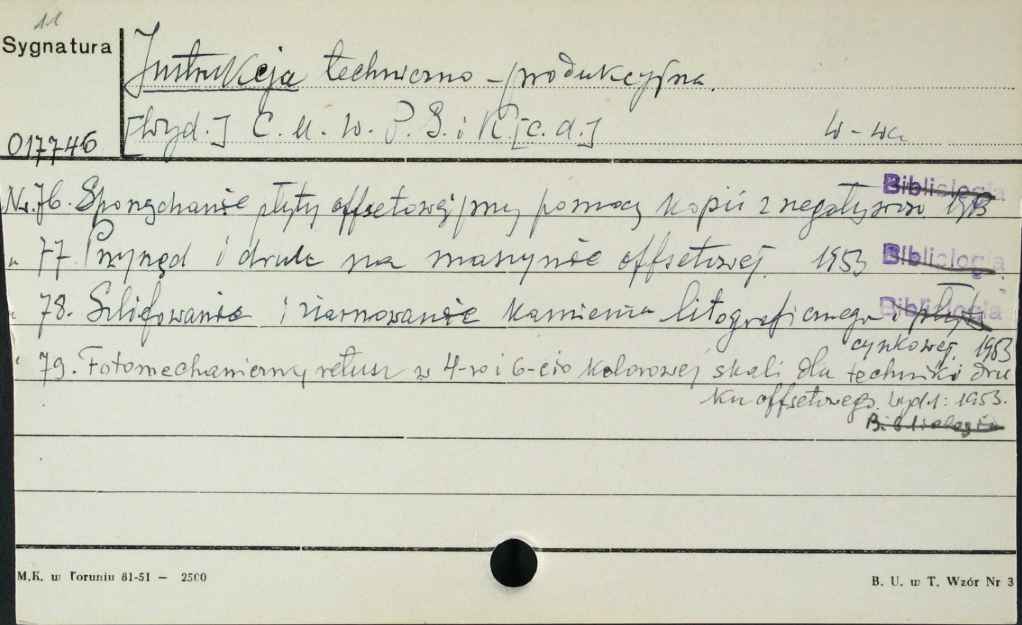 11
Sygnatura
Instrukcja techniczno-produkcyjna.
[Wyd.] C. U. W. P. G. i K. [c. d.] W-wa
017746
Nr. 76. Sporządzanie płyty offsetowej przy pomocy kopii z negatywów. 1953 Bibliologia
" 77 Przyrząd i druk na maszynie offsetowej. 1953 Bibliologia
" 78. Szlifowanie i ziarnowanie kamienia litograficznego i płyty Bibliologia
cynkowej. 1953
" 79. Fotomechaniczny retusz w 4-ro i 6-cio kolorowej skali dla techniki dru
ku offsetowego. Wyd. 1: 1953.
Bibliologia
M.K. w Toruniu 81-51 — 2500
B. U. w T. Wzór Nr 3